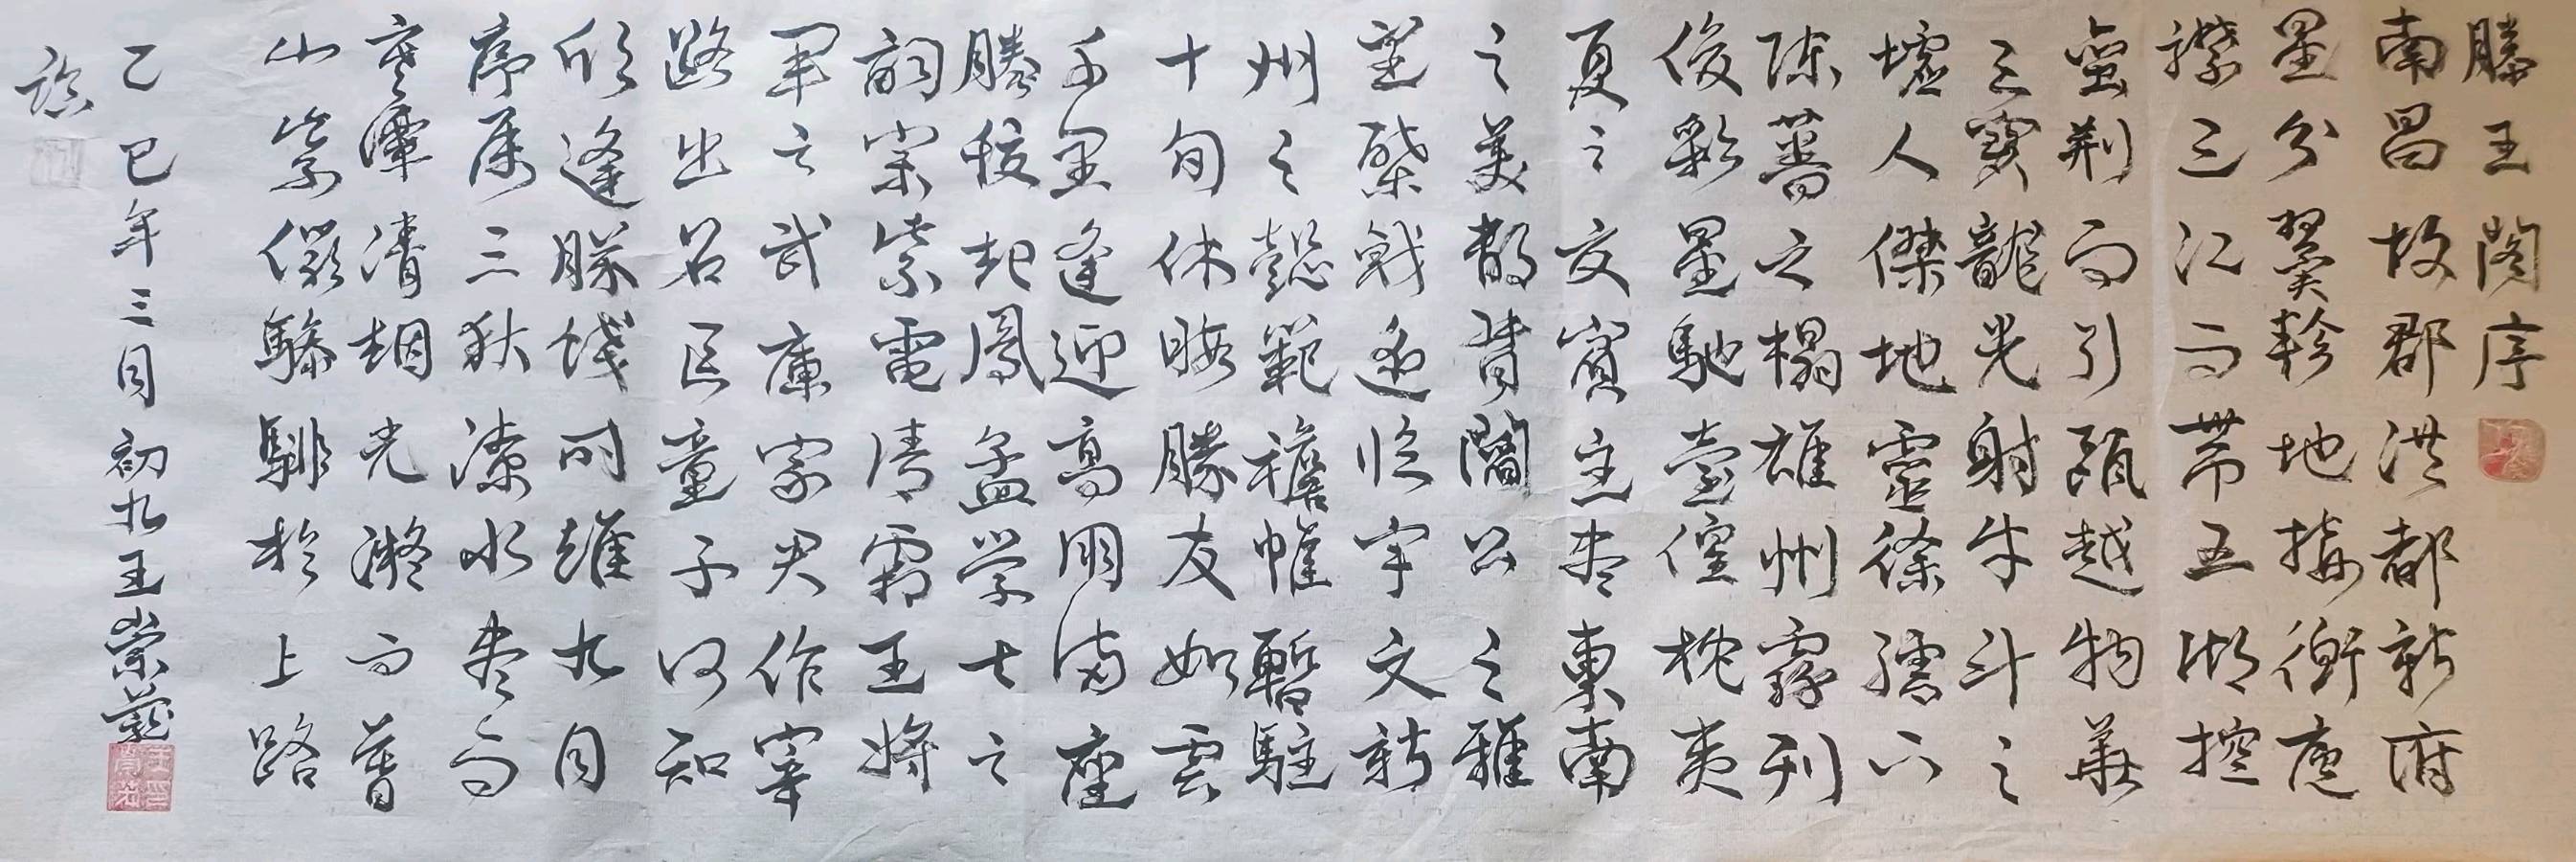 滕王閣序
南昌故郡洪都新府
星分翼軫地接衡廬
襟三江而帶五湖控
蠻荆而引甌越物華
天寶龍光射牛斗之
墟人傑地靈徐孺下
陳蕃之榻雄州霧列
俊彩星馳臺隍枕夷
夏之交賓主盡東南
之美都督閻公之雅
望棨戟遙臨宇文新
州之懿範襜帷暫駐
十旬休暇勝友如雲
千里逢迎高朋滿座
騰蛟起鳳孟學士之
詞宗紫電清霜王將
軍之武庫家君作宰
路出名區童子何知
躬逢勝餞时維九月
序屬三秋潦水盡而
寒潭清烟光凝而暮
山紫儼驂騑於上路
乙巳年三月初九王崇